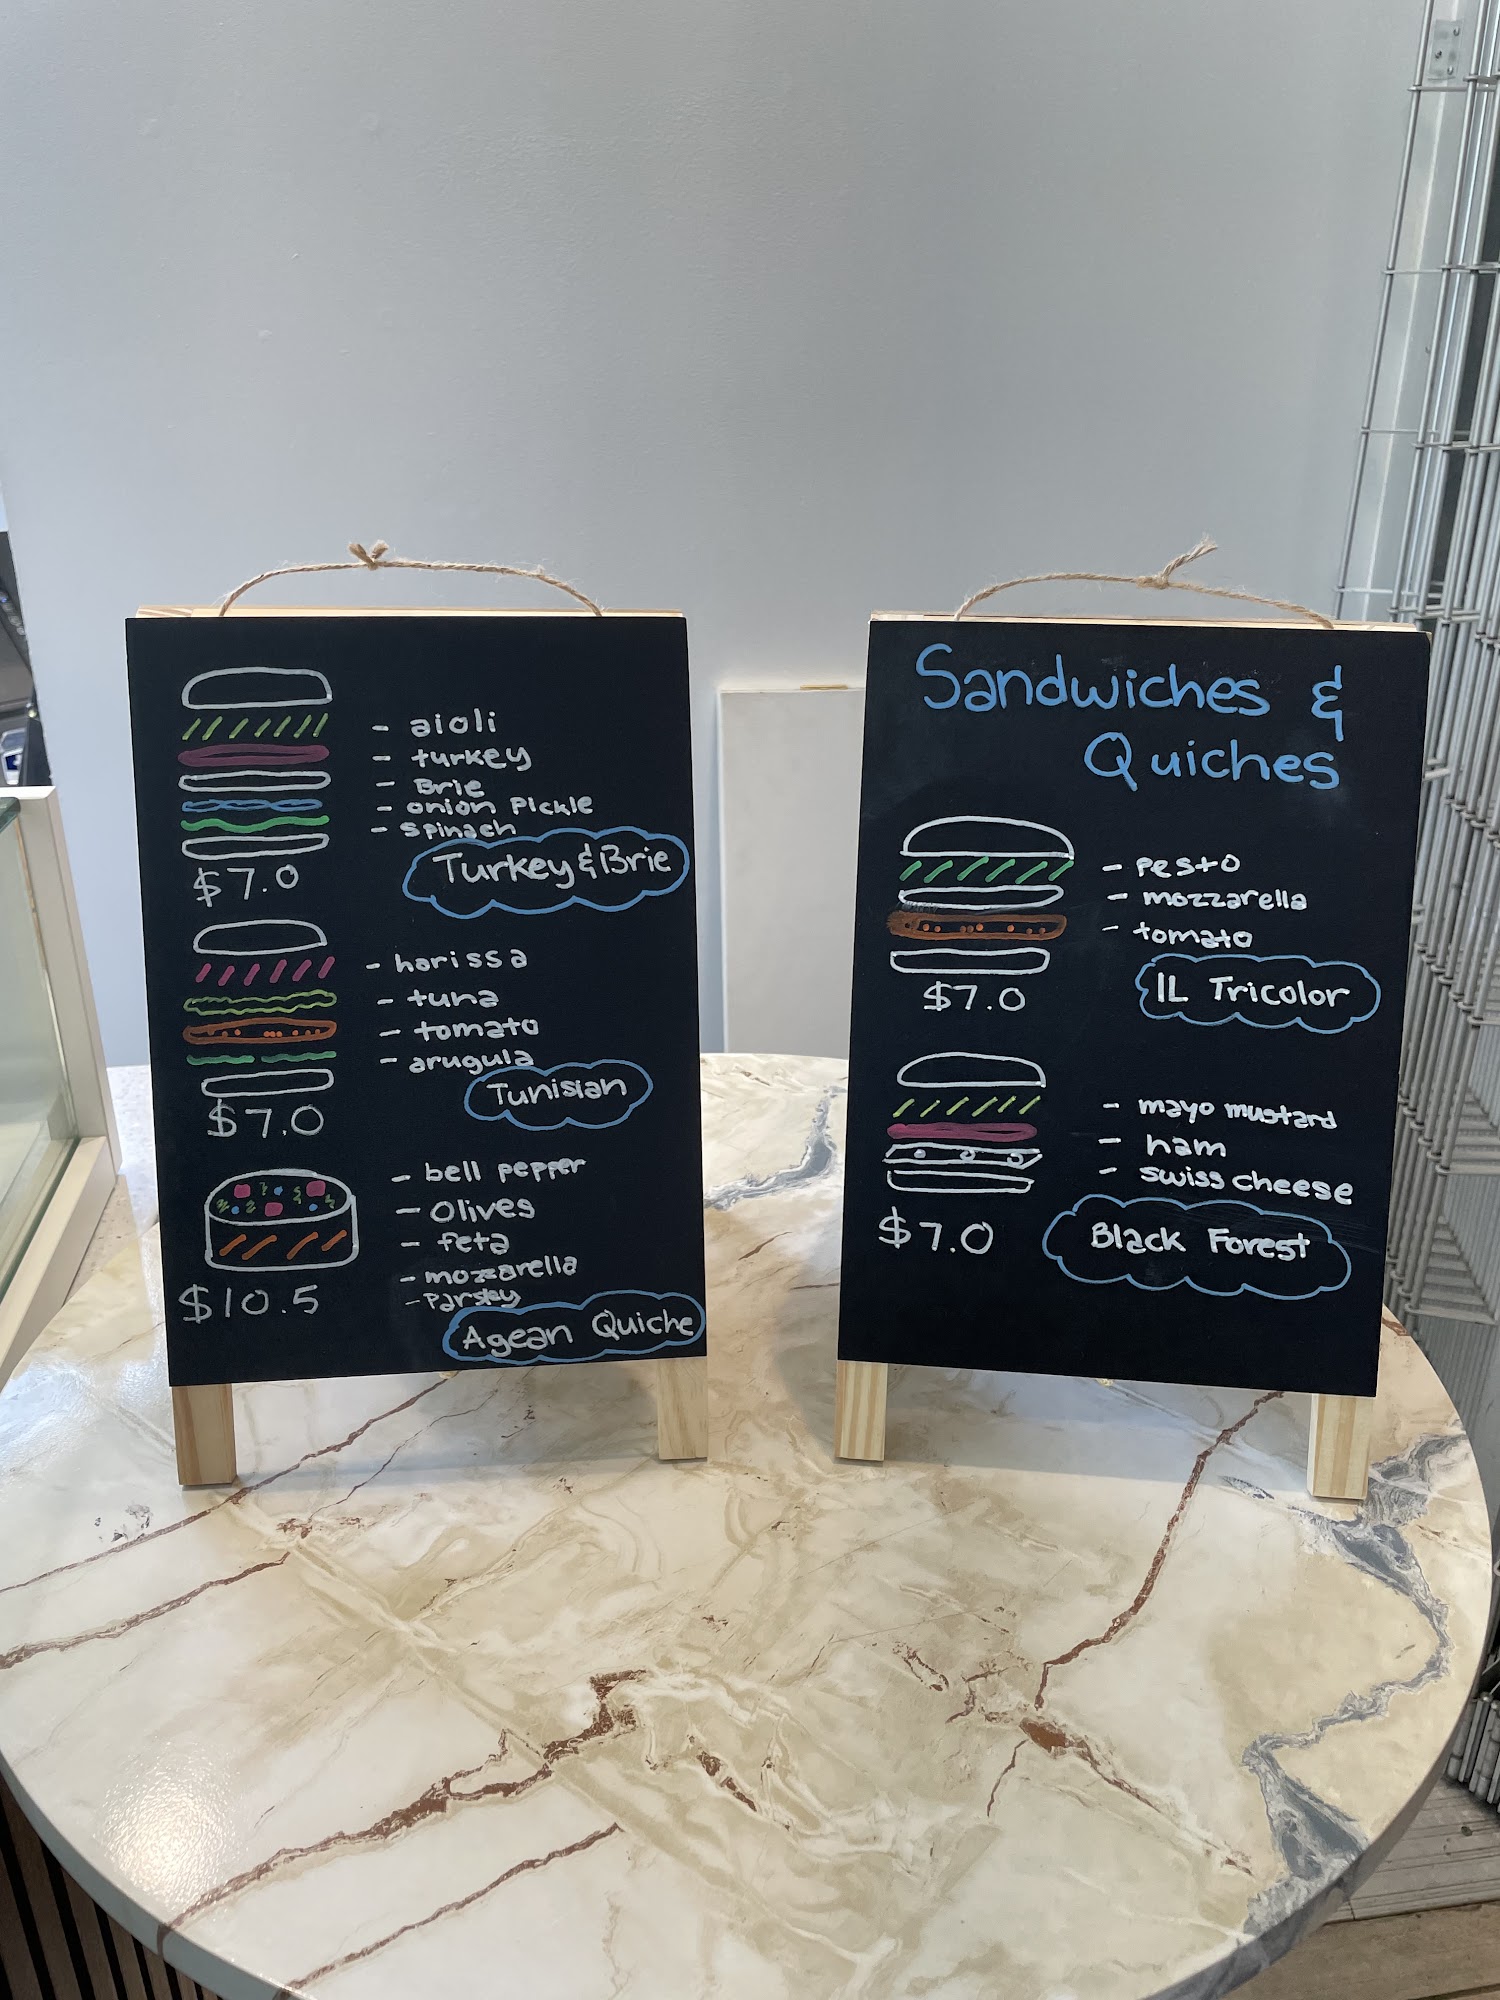 aioli
turkey
Brie
onion Pickle
spinach
$7.0
Turkey & Brie
harissa
tuna
tomato
arugula
$7.0
Tunisian
bell pepper
olives
feta
mozzarella
Parsley
$10.5
Agean Quiche
Sandwiches &
Quiches
pesto
mozzarella
tomato
$7.0
IL Tricolor
mayo mustard
ham
swiss cheese
$7.0
Black Forest